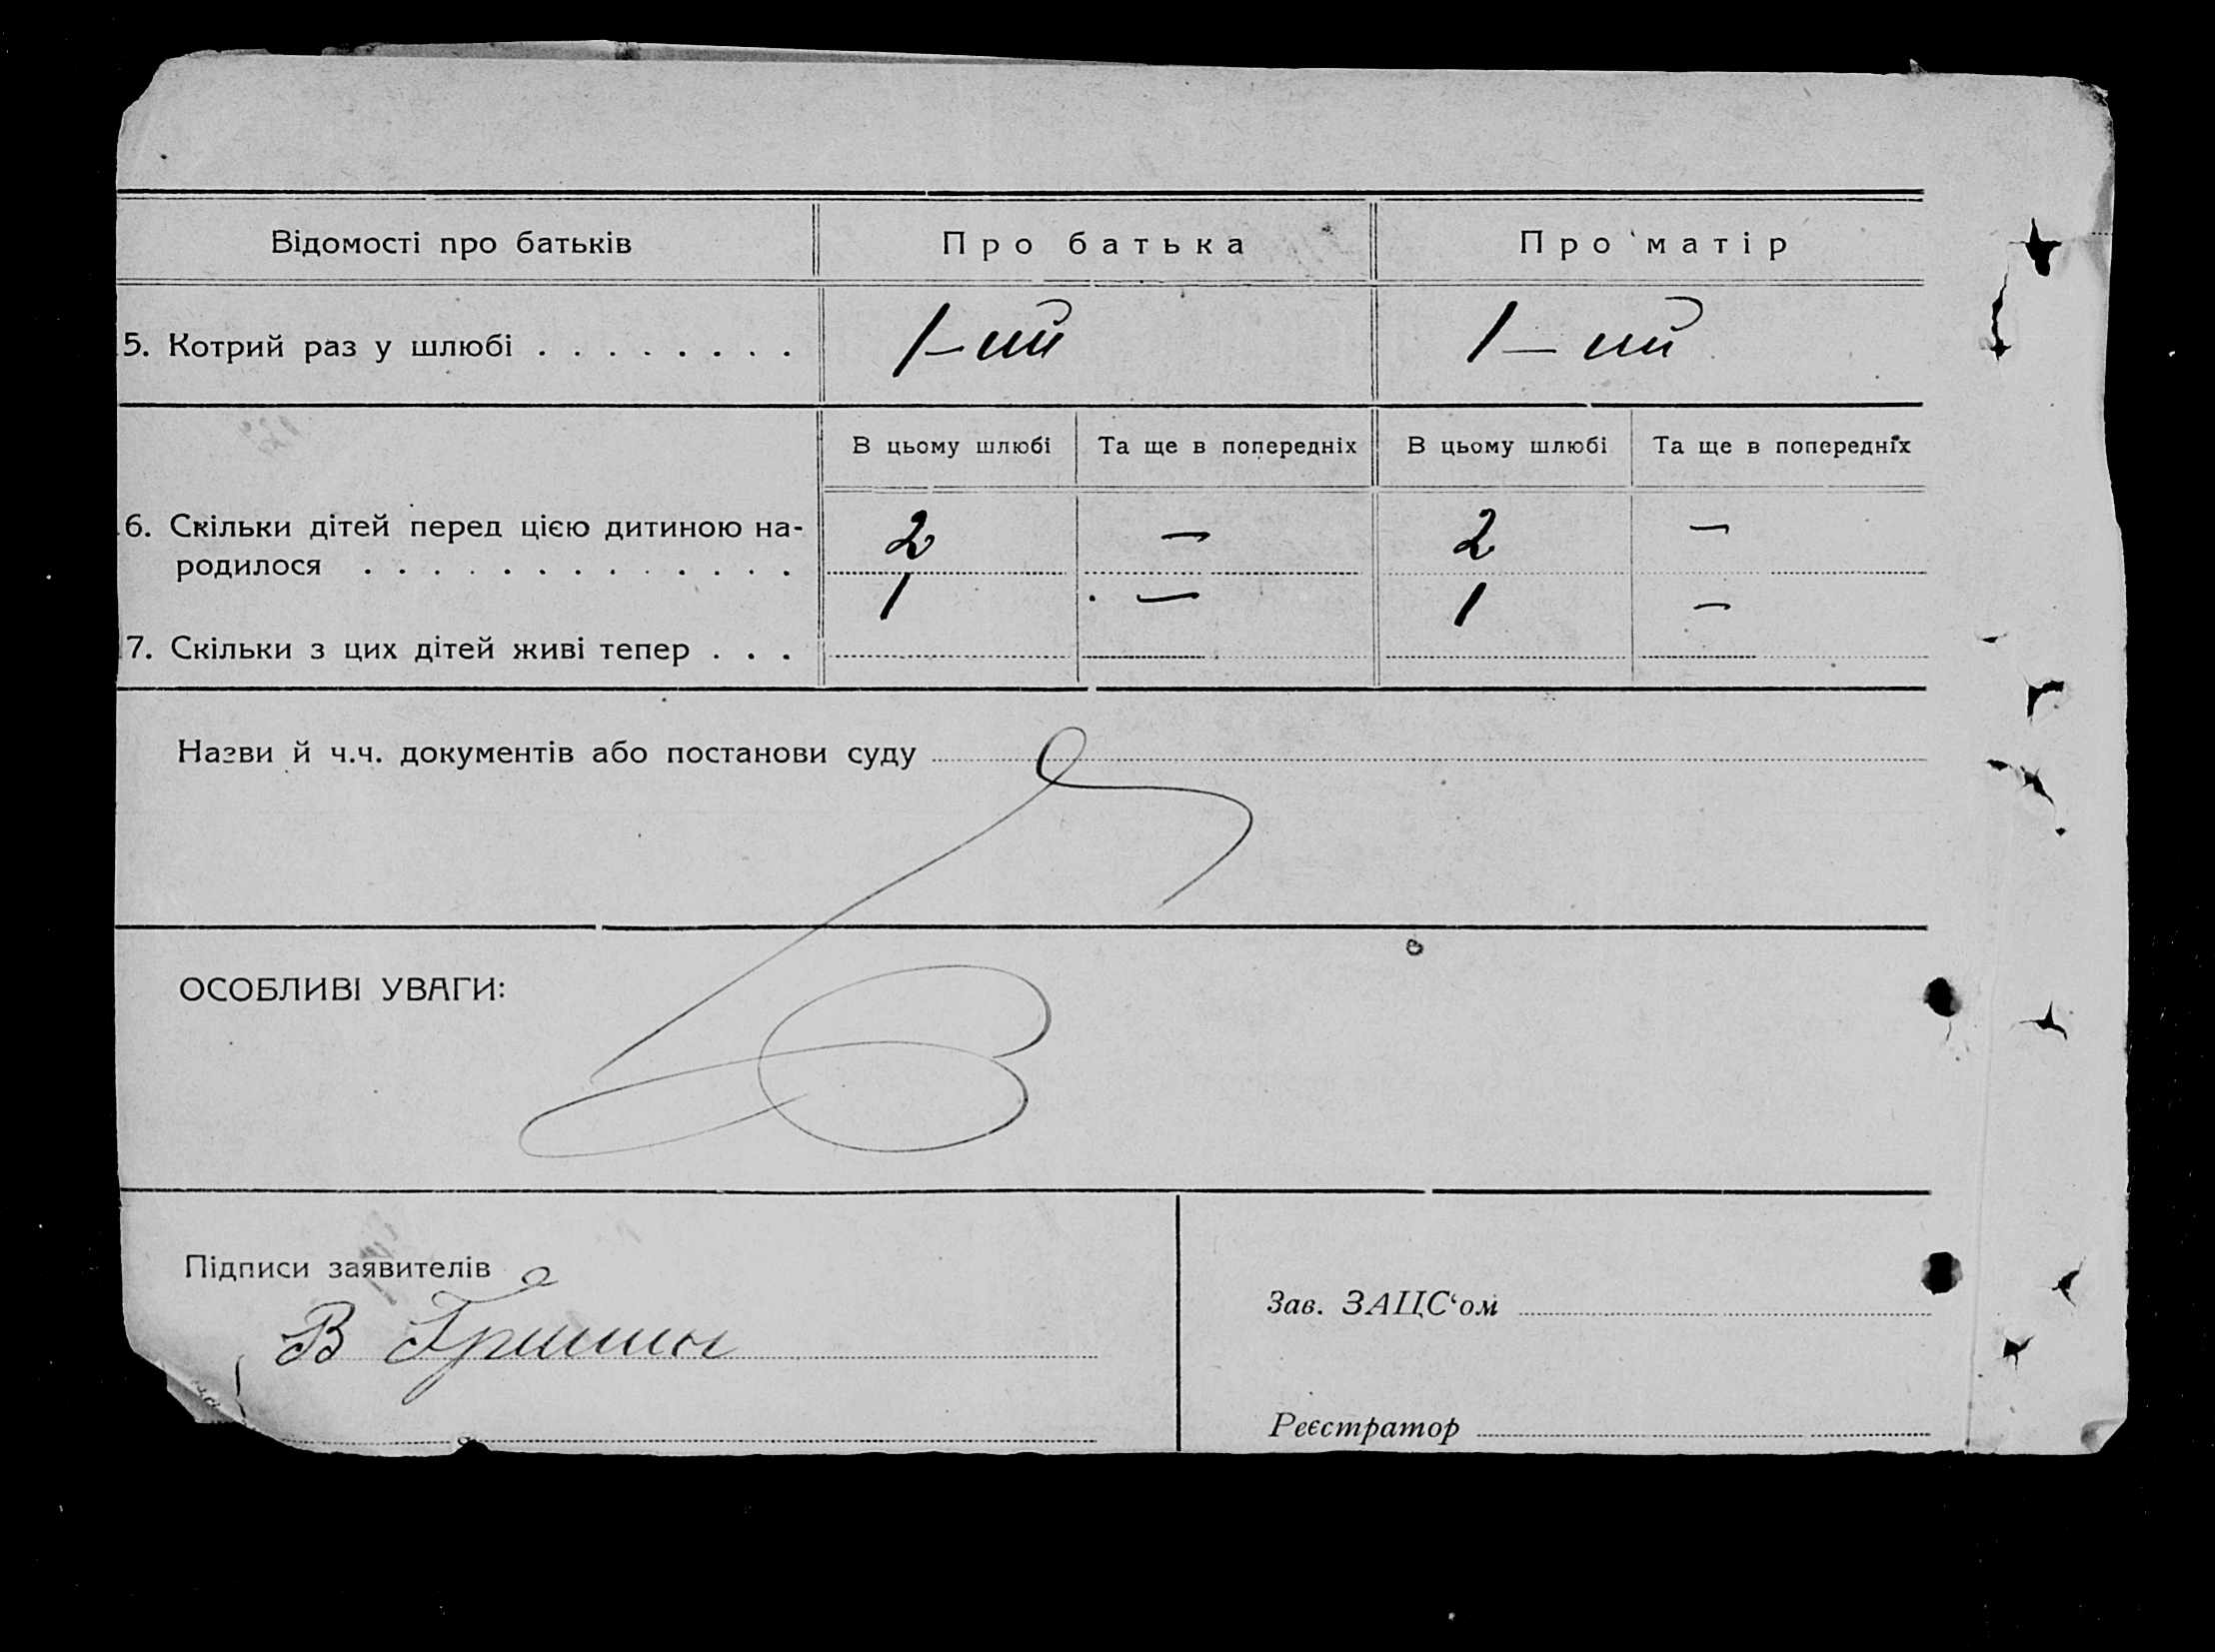 Відомості про батьків Про батька Про матір
5. Котрий раз у шлюбі . . . . . . . . 1-ий 1-ий
В цьому шлюбі Та ще в попередніх В цьому шлюбі Та ще в попередніх
6. Скільки дітей перед цією дитиною на- 2 — 2 —
родилося . . . . . . . . . . . . .
7. Скільки з цих дітей живі тепер . . . 1 — 1 —
Назви й ч.ч. документів або постанови суду
ОСОБЛИВІ УВАГИ:
Підписи заявителів
В Гришин
Зав. ЗАЦС‘ом
Реєстратор